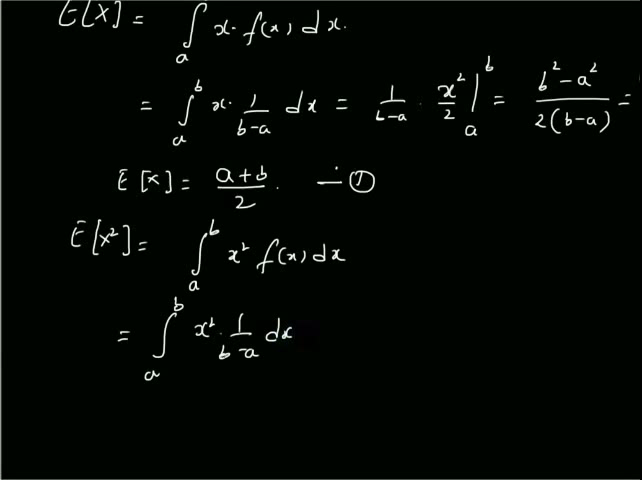 E[X] = ∫ₐ x· f(x) dx.
= ∫ₐᵇ x· 1/(b-a) dx = 1/(b-a) · x²/2 |ₐᵇ = (b²-a²)/(2(b-a)) =
E[X] = (a+b)/2. — ①
E[X²] = ∫ₐᵇ x² f(x) dx
= ∫ₐᵇ x²· 1/(b-a) dx